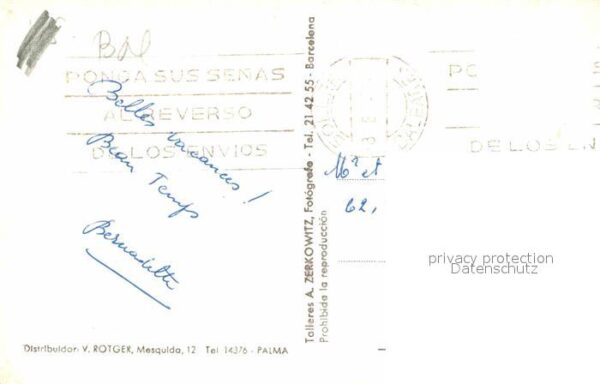 Bal
PONGA SUS SEÑAS
AL REVERSO
DE LOS ENVIOS
Belles vacances !
Beau Temps
Bernadette
Distribuidor V. ROTGER, Mesquida, 12 Tel 14376 - PALMA
Talleres A. ZERKOWITZ, Fotógrafo - Tel. 21 42 55 - Barcelona
Prohibida la reproducción
PO
DE LOS EN
Mr et
62,
privacy protection
Datenschutz